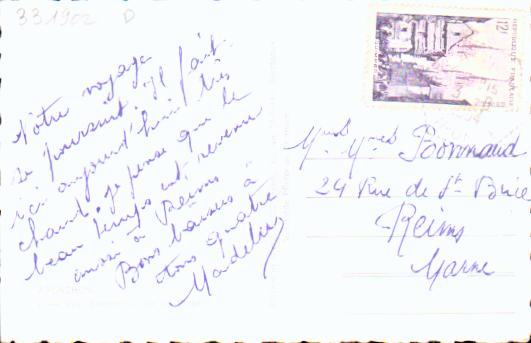 331902 D
Nôtre voyage
se poursuit. Il fait
ici aujourd'hui très
chaud; je pense que le
beau temps est revenu
aussi à Reims.
Bons baisers à
tous quatre
12F
REPUBLIQUE FRANÇAISE
24 Rue de St Brice
Reims
Marne